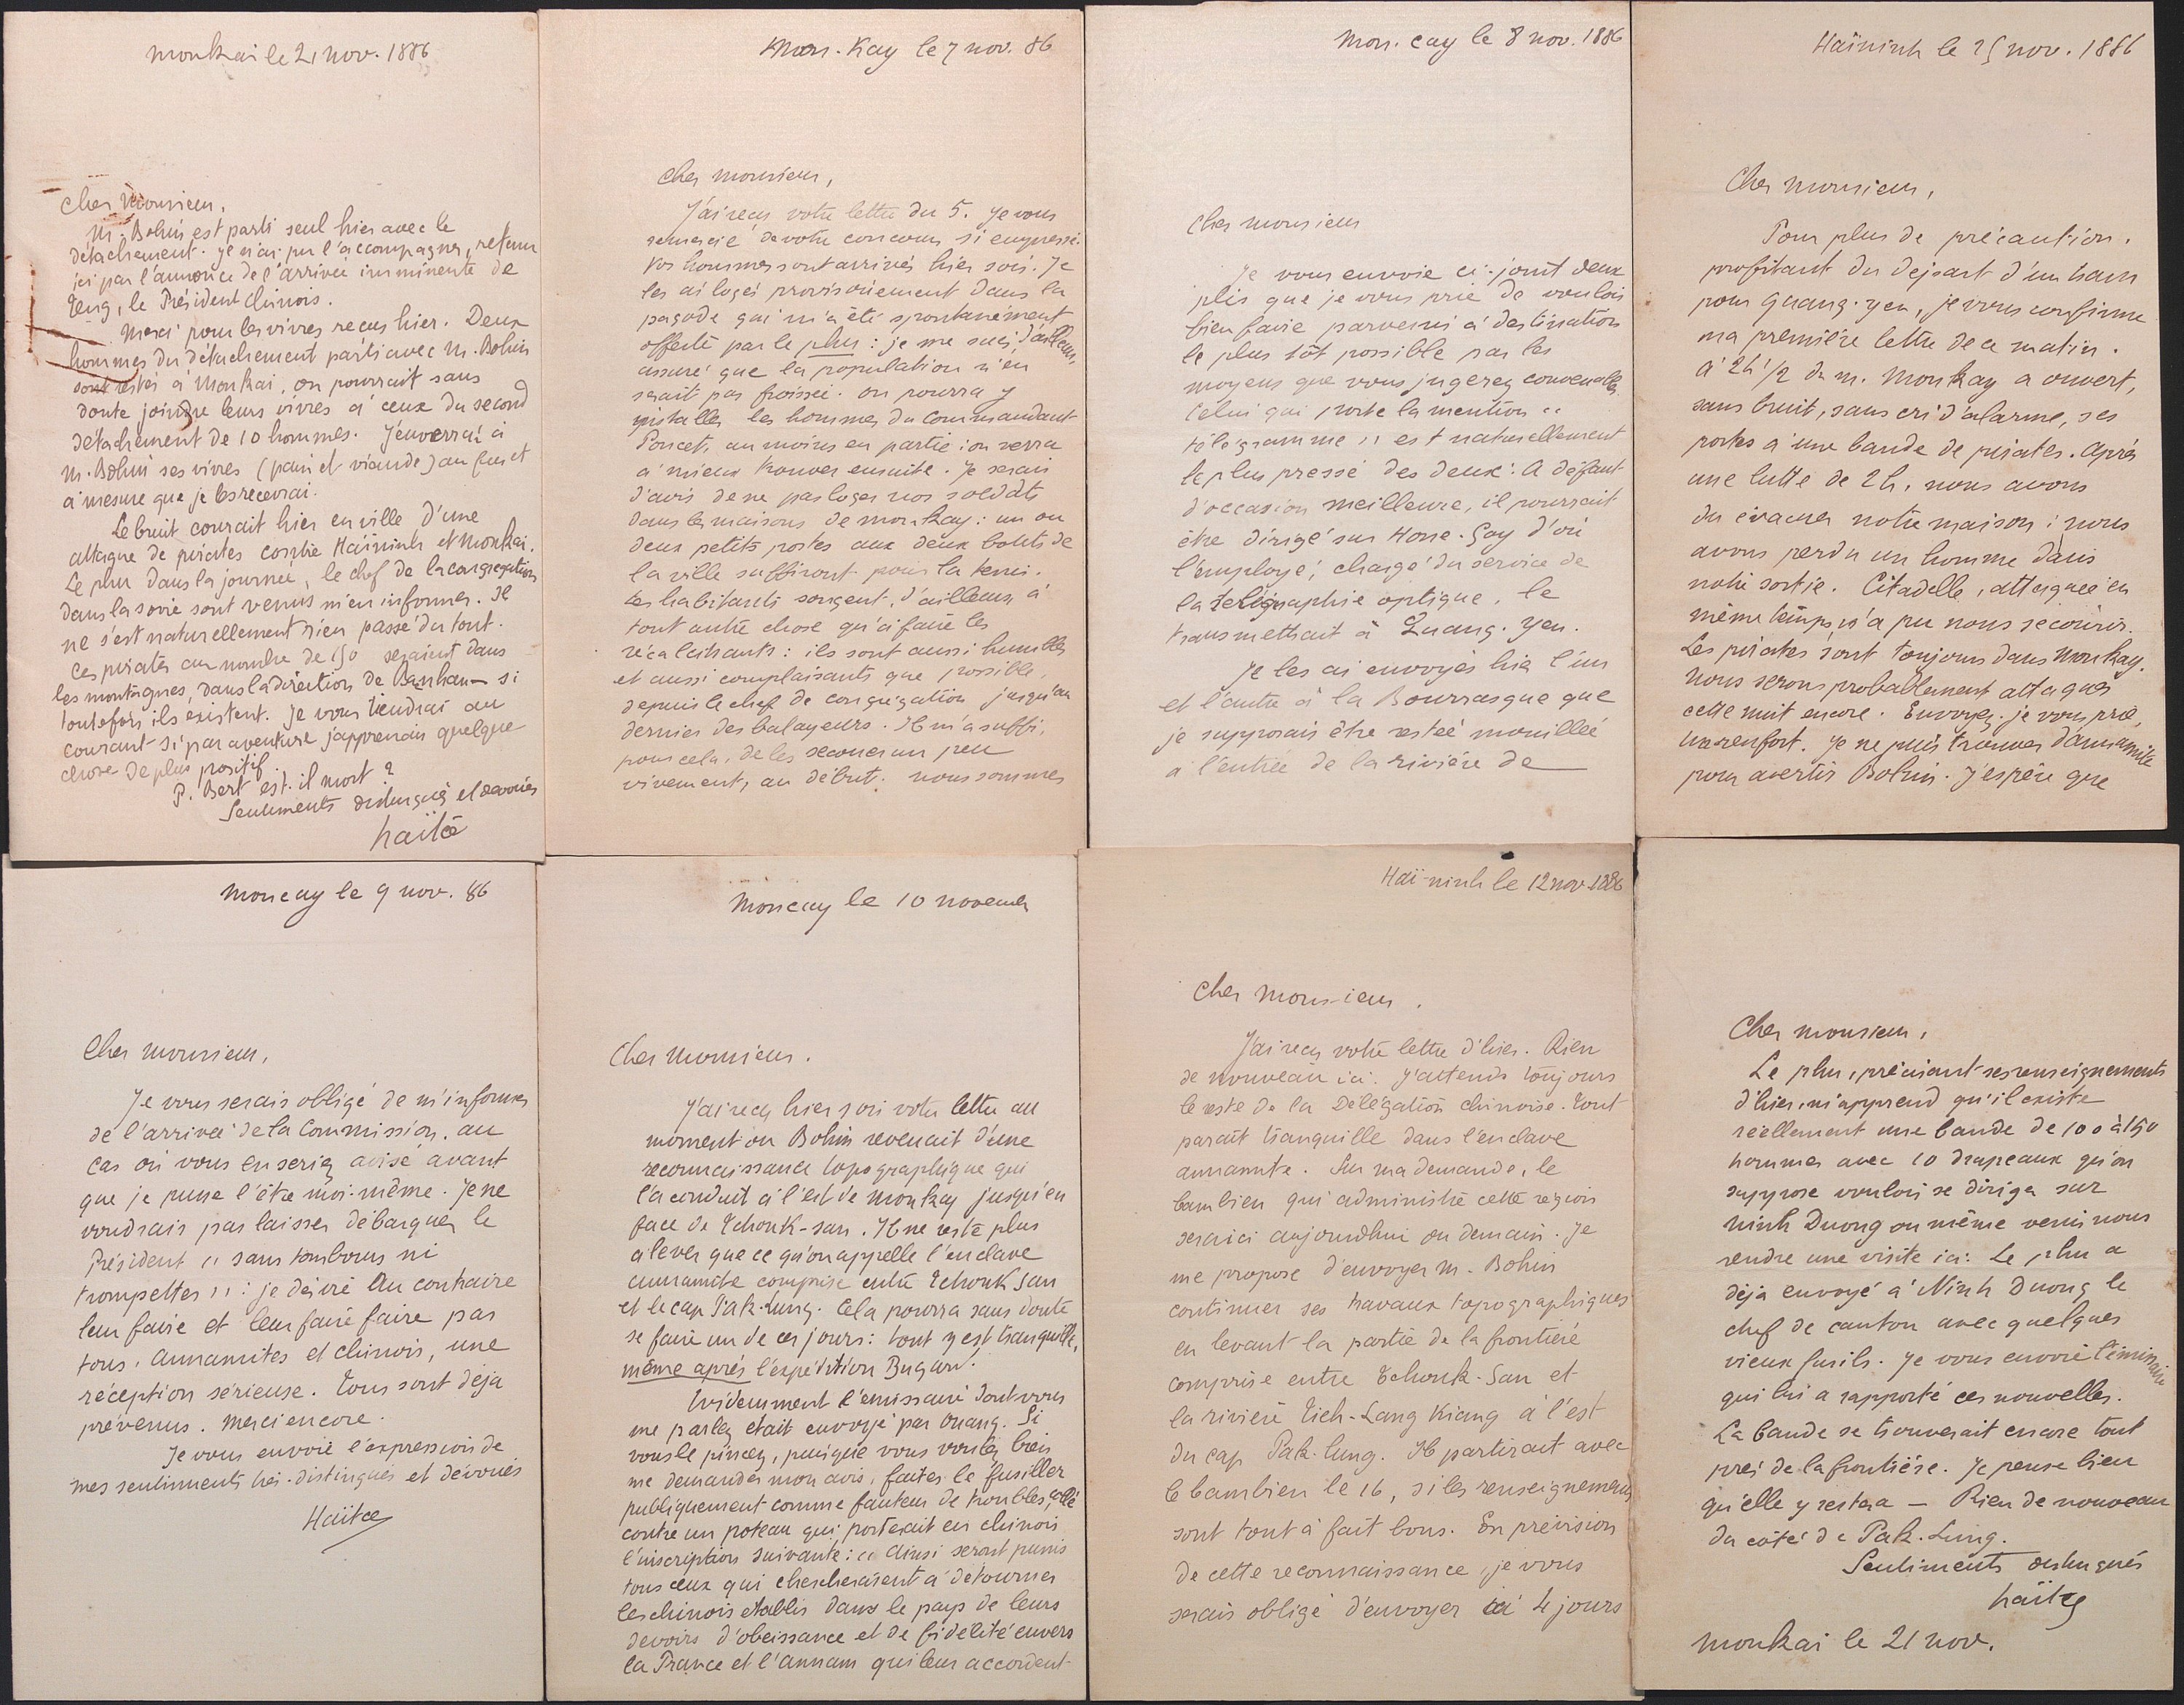 Monkaï le 21 nov. 1886
Cher Monsieur,
M. Bohin est parti seul hier avec le
détachement. Je n'ai pu l'accompagner, retenu
ici par l'annonce de l'arrivée imminente de
Teng, le Président chinois.
Merci pour les vivres reçus hier. Deux
hommes du détachement parti avec M. Bohin
sont restés à Monkaï, on pourrait sans
doute joindre leurs vivres à ceux du second
détachement de 10 hommes. J'enverrai à
M. Bohin ses vivres (pain et viande) au fur et
à mesure que je les recevrai.
Le bruit courait hier en ville d'une
attaque de pirates contre Haïninh et Monkaï.
Le phu dans la journée, le chef de la congrégation
dans la soirée sont venus m'en informer. Il
ne s'est naturellement rien passé du tout.
Ces pirates au nombre de 150 seraient dans
les montagnes, dans la direction de — si
toutefois ils existent. Je vous tiendrai au
courant si par aventure j'apprenais quelque
chose de plus positif.
P. Bert est-il mort ?
Sentiments distingués et dévoués
Haïtce
Mon-Kay le 7 nov. 86
Cher Monsieur,
J'ai reçu votre lettre du 5. Je vous
remercie de votre concours si empressé.
Vos hommes sont arrivés hier soir. Je
les ai logés provisoirement dans la
pagode qui m'a été spontanément
offerte par le phu : je me suis, d'ailleurs,
assuré que la population n'en
serait pas froissée. On pourra y
installer les hommes du Commandant
Poncet, au moins en partie : on verra
à mieux trouver ensuite. Je serais
d'avis de ne pas loger nos soldats
dans les maisons de Monkay : un ou
deux petits postes aux deux bouts de
la ville suffiront pour la tenir.
Les habitants songent, d'ailleurs, à
tout autre chose qu'à faire les
récalcitrants : ils sont aussi humbles
et aussi complaisants que possible,
depuis le chef de congrégation jusqu'au
dernier des balayeurs. Il m'a suffi,
pour cela, de les secouer un peu
vivement, au début. Nous sommes
Mon-cay le 8 nov. 1886
Cher Monsieur
Je vous envoie ci-joint deux
plis que je vous prie de vouloir
bien faire parvenir à destination
le plus tôt possible par les
moyens que vous jugerez convenables
Celui qui porte la mention "
télégramme " est naturellement
le plus pressé des deux. A défaut
d'occasion meilleure, il pourrait
être dirigé sur Hone-Gay d'où
l'employé, chargé du service de
la télégraphie optique, le
transmettrait à Quang-Yen.
Je les ai envoyés hier l'un
et l'autre à la Bourrasque que
je supposais être restée mouillée
à l'entrée de la rivière de
Haïninh le 25 nov. 1886
Cher Monsieur,
Pour plus de précaution,
profitant du départ d'un
pour Quang-Yen, je vous confirme
ma première lettre de ce matin.
à 2h 1/2 du m. Monkay a ouvert,
sans bruit, sans cri d'alarme, ses
portes à une bande de pirates. Après
une lutte de 2h, nous avons
du évacuer notre maison : nous
avons perdu un homme dans
notre sortie. Citadelle, attaquée en
même temps n'a pu nous secourir.
Les pirates sont toujours dans Monkay.
Nous serons probablement attaqués
cette nuit encore. Envoyez, je vous prie,
un renfort. Je ne puis trouver d'annamite
pour avertir Bohin. J'espère que
Moncay le 9 nov. 86
Cher Monsieur,
Je vous serais obligé de m'informer
de l'arrivée de la Commission, au
cas où vous en seriez avisé avant
que je puisse l'être moi-même. Je ne
voudrais pas laisser débarquer le
Président " sans tambours ni
trompettes " : je désire au contraire
leur faire et leur faire faire par
tous, Annamites et Chinois, une
réception sérieuse. Tous sont déjà
prévenus. Merci encore.
Je vous envoie l'expression de
mes sentiments très-distingués et dévoués
Haïtce
Moncay le 10 novembre
Cher Monsieur.
J'ai reçu hier soir votre lettre au
moment ou Bohin revenait d'une
reconnaissance topographique qui
l'a conduit à l'est de Monkay jusqu'en
face de Tchouk-san. Il ne reste plus
à lever que ce qu'on appelle l'enclave
annamite comprise entre Tchouk San
et le cap Pak-Lung. Cela pourra sans doute
se faire un de ces jours : tout y est tranquille,
même après l'expédition Bugard.
Evidemment l'émissaire dont vous
me parlez était envoyé par Ouang. Si
vous le pincez, puisque vous voulez bien
me demander mon avis, faites le fusiller
publiquement comme fauteur de troubles, collé
contre un poteau qui porterait en chinois
l'inscription suivante : " Ainsi seront punis
tous ceux qui chercheraient à détourner
les chinois établis dans le pays de leurs
devoirs d'obéissance et de fidélité envers
la France et l'Annam qui leur accordent
Haï-ninh le 12 nov. 1886
Cher Monsieur.
J'ai reçu votre lettre d'hier. Rien
de nouveau ici. J'attends toujours
le reste de la Délégation chinoise. Tout
paraît tranquille dans l'enclave
annamite. Sur ma demande, le
bambien qui administre cette région
sera ici aujourd'hui ou demain. Je
me propose d'envoyer M. Bohin
continuer ses travaux topographiques
en levant la partie de la frontière
comprise entre Tchouk-San et
la rivière Tich-Lang Kiang à l'est
du cap Pak-Lung. Il partirait avec
le bambien le 16, si les renseignements
sont tout à fait bons. En prévision
de cette reconnaissance, je vous
serais obligé d'envoyer ici 4 jours
Cher Monsieur,
Le phu, précisant ses renseignements
d'hier, m'apprend qu'il existe
réellement une bande de 100 à 150
hommes avec 10 drapeaux qu'on
suppose vouloir se diriger sur
Ninh Duong ou même venir nous
rendre une visite ici. Le phu a
déjà envoyé à Ninh Duong le
chef de canton avec quelques
vieux fusils. Je vous envoie l'émissaire
qui lui a rapporté ces nouvelles.
La bande se trouverait encore tout
près de la frontière. Je pense bien
qu'elle y restera — Rien de nouveau
du côté de Pak-Lung.
Sentiments distingués
Haïtce
Monkaï le 21 nov.